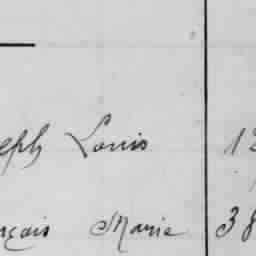 eph Louis 12
nçais Marie 38